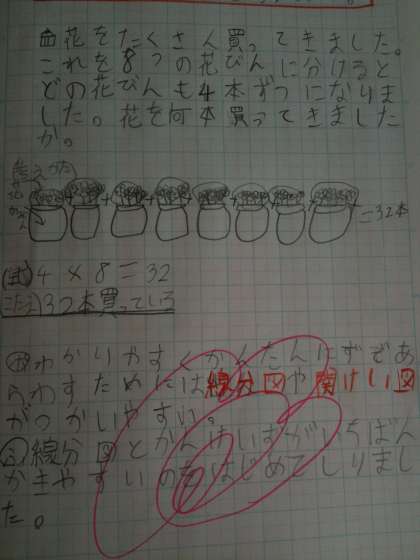 問花をたくさん買ってきました。
これを8つの花びんに分けると
どの花びんも4本ずつになりま
した。花を何本買ってきました
か。
考えかた
花
かびん
+ + + + + + + =32本
(式)4×8=32
こたえ32本買っている
わかりやすくかんたんにずであ
らわすためには線分図や関けい図
がつかいやすい。
線分図とかんけいずがいちばん
かきやすいのをはじめてしりまし
た。